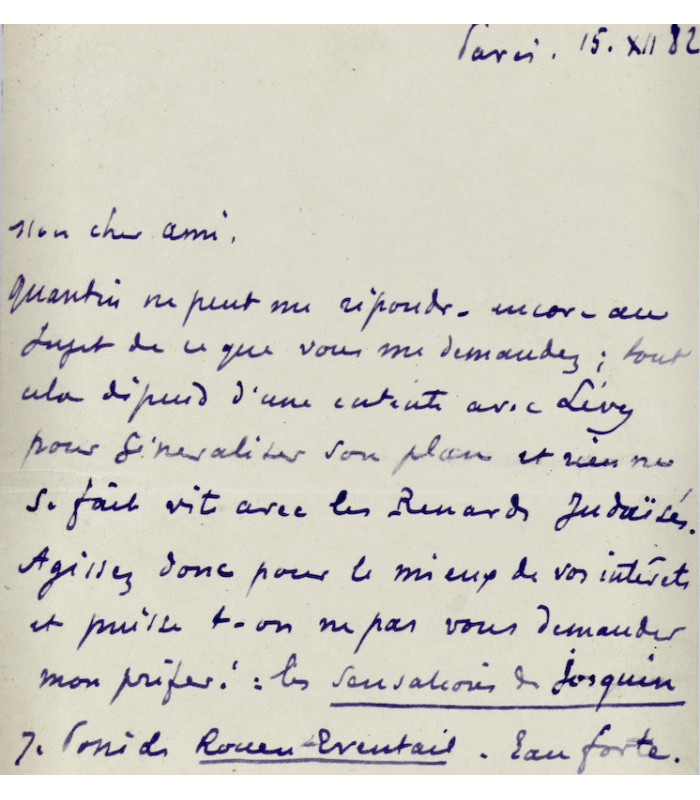 Paris. 15. XII 82
Mon cher ami.
Quantin ne peut me répondre encore au
sujet de ce que vous me demandez ; tout
cela dépend d'une entente avec Lévy
pour généraliser son plan et rien ne
se fait vite avec les Renards Judaïsés.
Agissez donc pour le mieux de vos intérêts
et puisse t-on ne pas vous demander
mon préféré : les Sensations de Josquin
Je possède Rouen-Eventail. Eau forte.